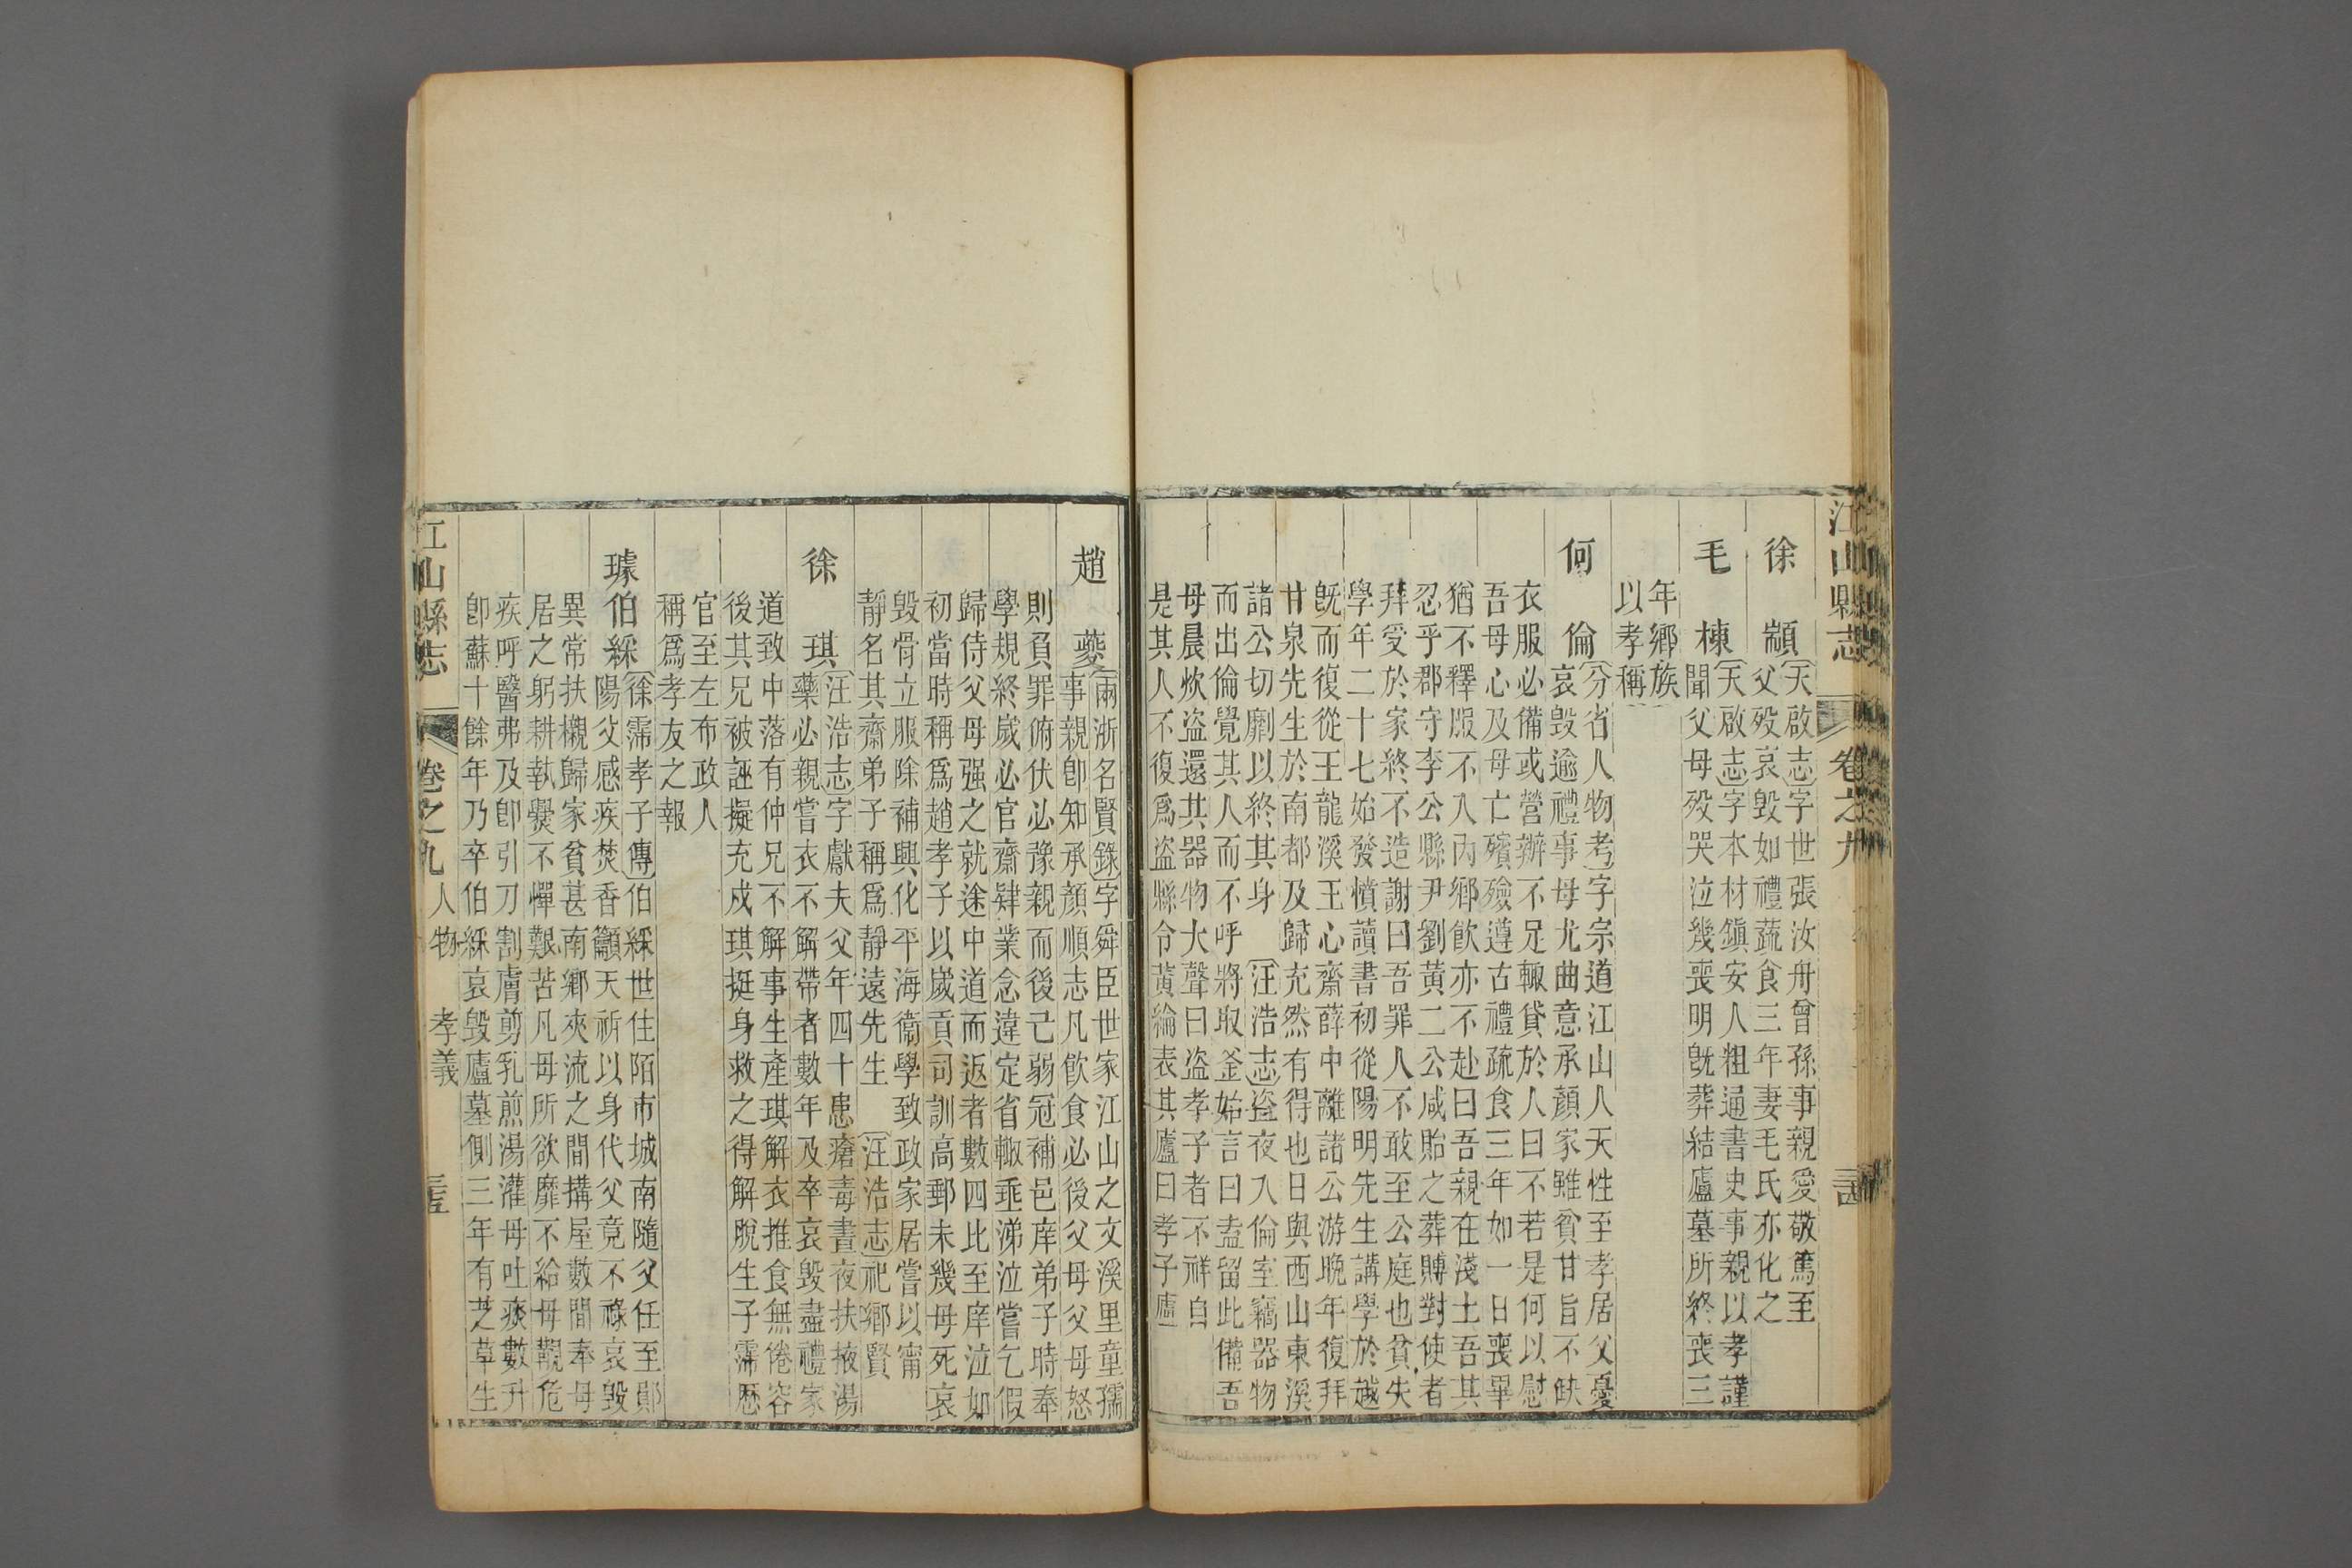 江山縣志 卷之九 三古
徐顓〔天啟志〕字世張汝舟曾孫事親愛敬篤至
父歿哀毀如禮蔬食三年妻毛氏亦化之
毛棟〔天啟志〕字本材鎮安人粗通書史事親以孝謹
聞父母歿哭泣幾喪明旣葬結廬墓所終喪三
年鄉族
以孝稱
何倫〔分省人物考〕字宗道江山人天性至孝居父憂
哀毀逾禮事母尤曲意承顏家雖貧甘旨不缺
衣服必備或營辦不足輙貸於人曰不若是何以慰
吾母心及母亡殯殮遵古禮疏食三年如一日喪畢
猶不釋服不入內鄉飲亦不赴曰吾親在淺土吾其
忍乎郡守李公縣尹劉黃二公咸貽之葬賻對使者
拜受於家終不造謝曰吾罪人不敢至公庭也貧失
學年二十七始發憤讀書初從陽明先生講學於越
旣而復從王龍溪王心齋薛中離諸公游晚年復拜
甘泉先生於南都及歸充然有得也日與西山東溪
諸公切劘以終其身〔汪浩志〕盜夜入倫室竊器物
而出倫覺其人而不呼將取釜始言曰盍留此備吾
母晨炊盜還其器物大聲曰盜孝子者不祥自
是其人不復爲盜縣令黃綸表其廬曰孝子廬
趙夔〔兩浙名賢錄〕字舜臣世家江山之文溪里童孺
事親卽知承顏順志凡飮食必後父母父母怒
則負罪俯伏必豫親而後己弱冠補邑庠弟子時奉
學規終歲必官齋肄業念違定省輙垂涕泣嘗乞假
歸侍父母强之就途中道而返者數四比至庠泣如
初當時稱爲趙孝子以歲貢司訓高郵未幾母死哀
毀骨立服除補興化平海衞學致政家居嘗以甯
靜名其齋弟子稱爲靜遠先生〔汪浩志〕祀鄉賢
徐琪〔汪浩志〕字獻夫父年四十患瘡毒晝夜扶掖湯
藥必親嘗衣不解帶者數年及卒哀毀盡禮家
道致中落有仲兄不解事生產琪解衣推食無倦容
後其兄被誣擬充戍琪挺身救之得解脫生子霈歷
官至左布政人
稱爲孝友之報
璩伯綵〔徐霈孝子傳〕伯綵世住陌市城南隨父任至鄖
陽父感疾焚香籲天祈以身代父竟不祿哀毀
異常扶櫬歸家貧甚南鄉夾流之間搆屋數間奉母
居之躬耕執爨不憚艱苦凡母所欲靡不給母覯危
疾呼醫弗及卽引刀割膚剪乳煎湯灌母吐痰數升
卽蘇十餘年乃卒伯綵哀毀廬墓側三年有芝草生
江山縣志 卷之九 人物 孝義 三五